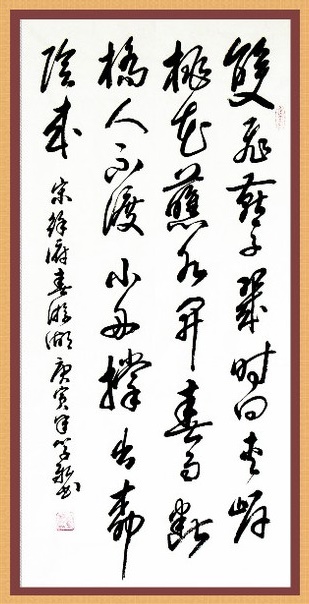 雙飛燕子幾時回夾岸
桃花蘸水開春雨斷
橋人不渡小舟撐出柳
陰來
宋徐府春游湖庚寅年書